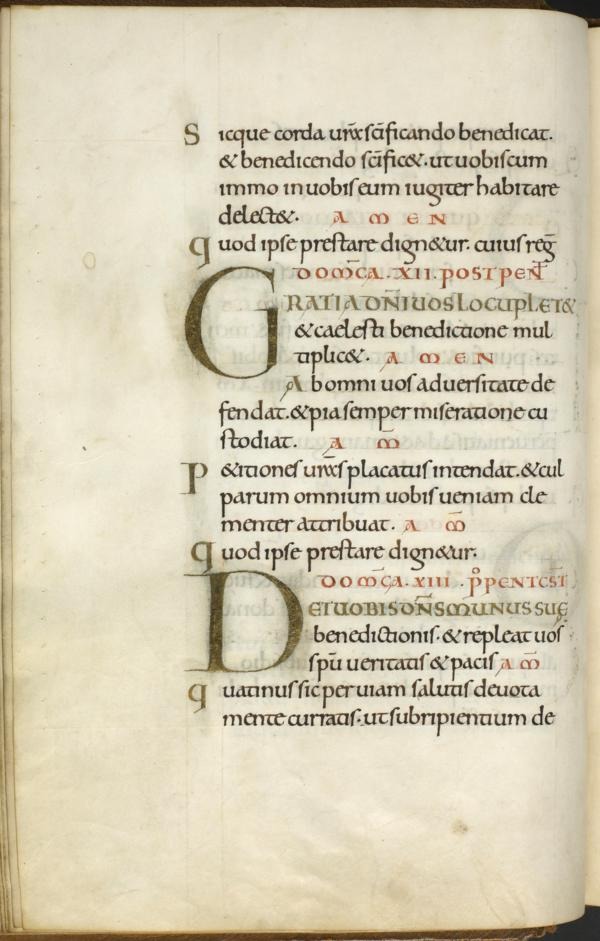 Sicque corda urx̅ sc̅ificando benedicat.
& benedicendo sc̅ific&. ut uobiscum
immo in uobis eum iugiter habitare
delect&. A M E N
quod ipse prestare dign&ur. cuius reg̅
DOM̅CA. XII. POST PEN̅T
GRATIA DN̅I UOS LOCUPLET&
& caelesti benedictione mul
tiplic&. A M E N
Ab omni uos aduersitate de
fendat. & pia semper miseratione cu
stodiat. A M̅
P&itiones urx̅s placatus intendat. & cul
parum omnium uobis ueniam cle
menter attribuat. A M̅
quod ipse prestare dign&ur.
DOM̅CA. XIII. P̊ PENTCST
DET UOBIS DN̅S MUNUS SUE
benedictionis. & repleat uos
sp̅u ueritatis & pacis A M̅
quatinus sic per uiam salutis deuota
mente curratis. ut subripientium de